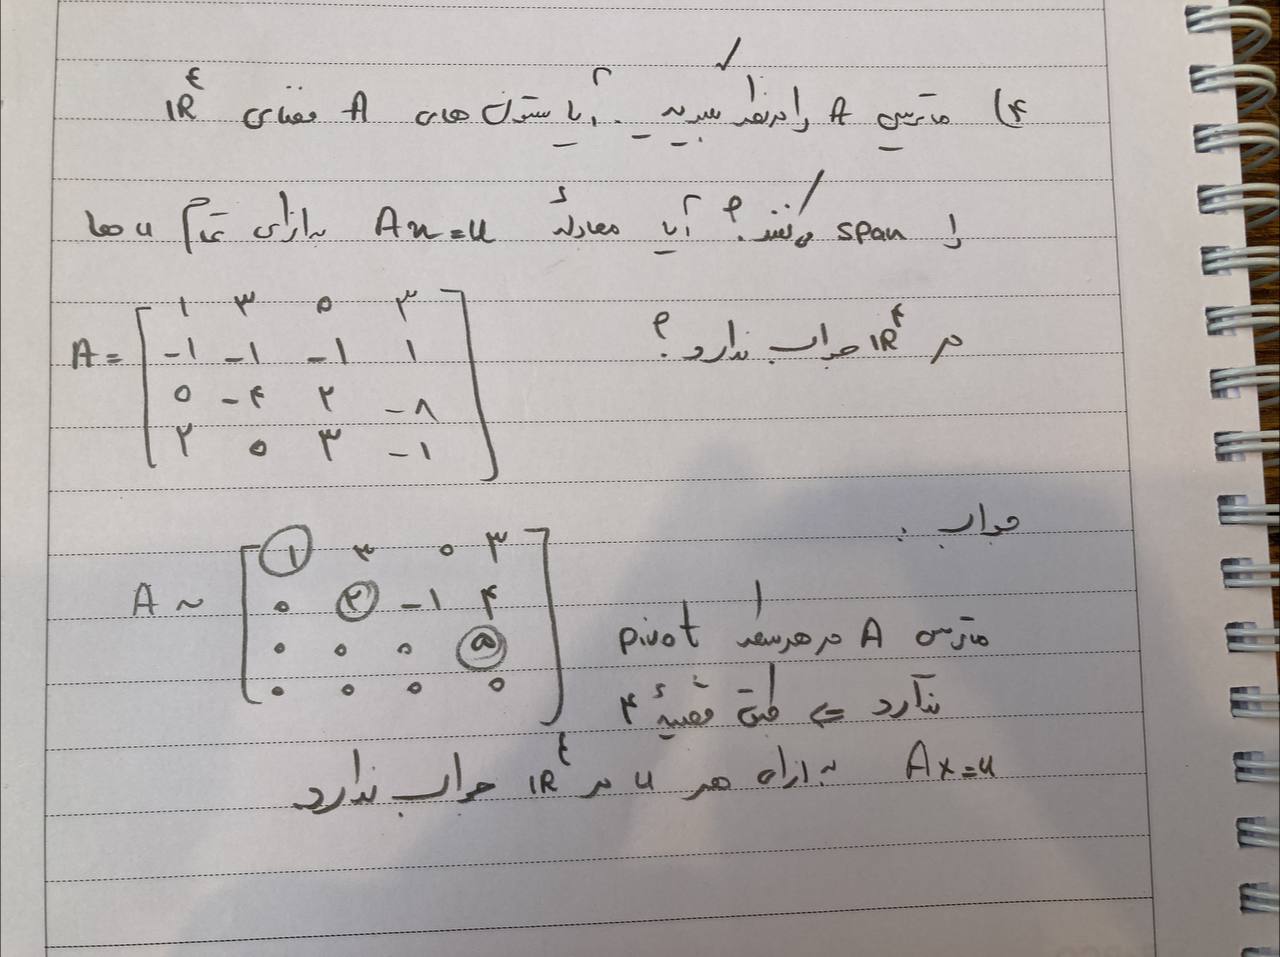 ۴) ماتریس A را در نظر بگیرید. آیا ستون های A فضای IR^۴
را span می کنند؟ آیا معادلهٔ Ax=u به ازای تمام u ها
در IR^۴ جواب ندارد؟
A = [
۱ ۳ ۰ ۳
-۱ -۱ -۱ ۱
۰ -۴ ۲ -۸
۲ ۰ ۳ -۱
]
جواب :
A ~ [
۱ ۳ ۰ ۳
۰ ۲ -۱ ۴
۰ ۰ ۰ ۵
۰ ۰ ۰ ۰
]
ماتریس A در هر سطر pivot
ندارد ⇐ طبق قضیهٔ ۴
Ax=u به ازای هر u در IR^۴ جواب ندارد.